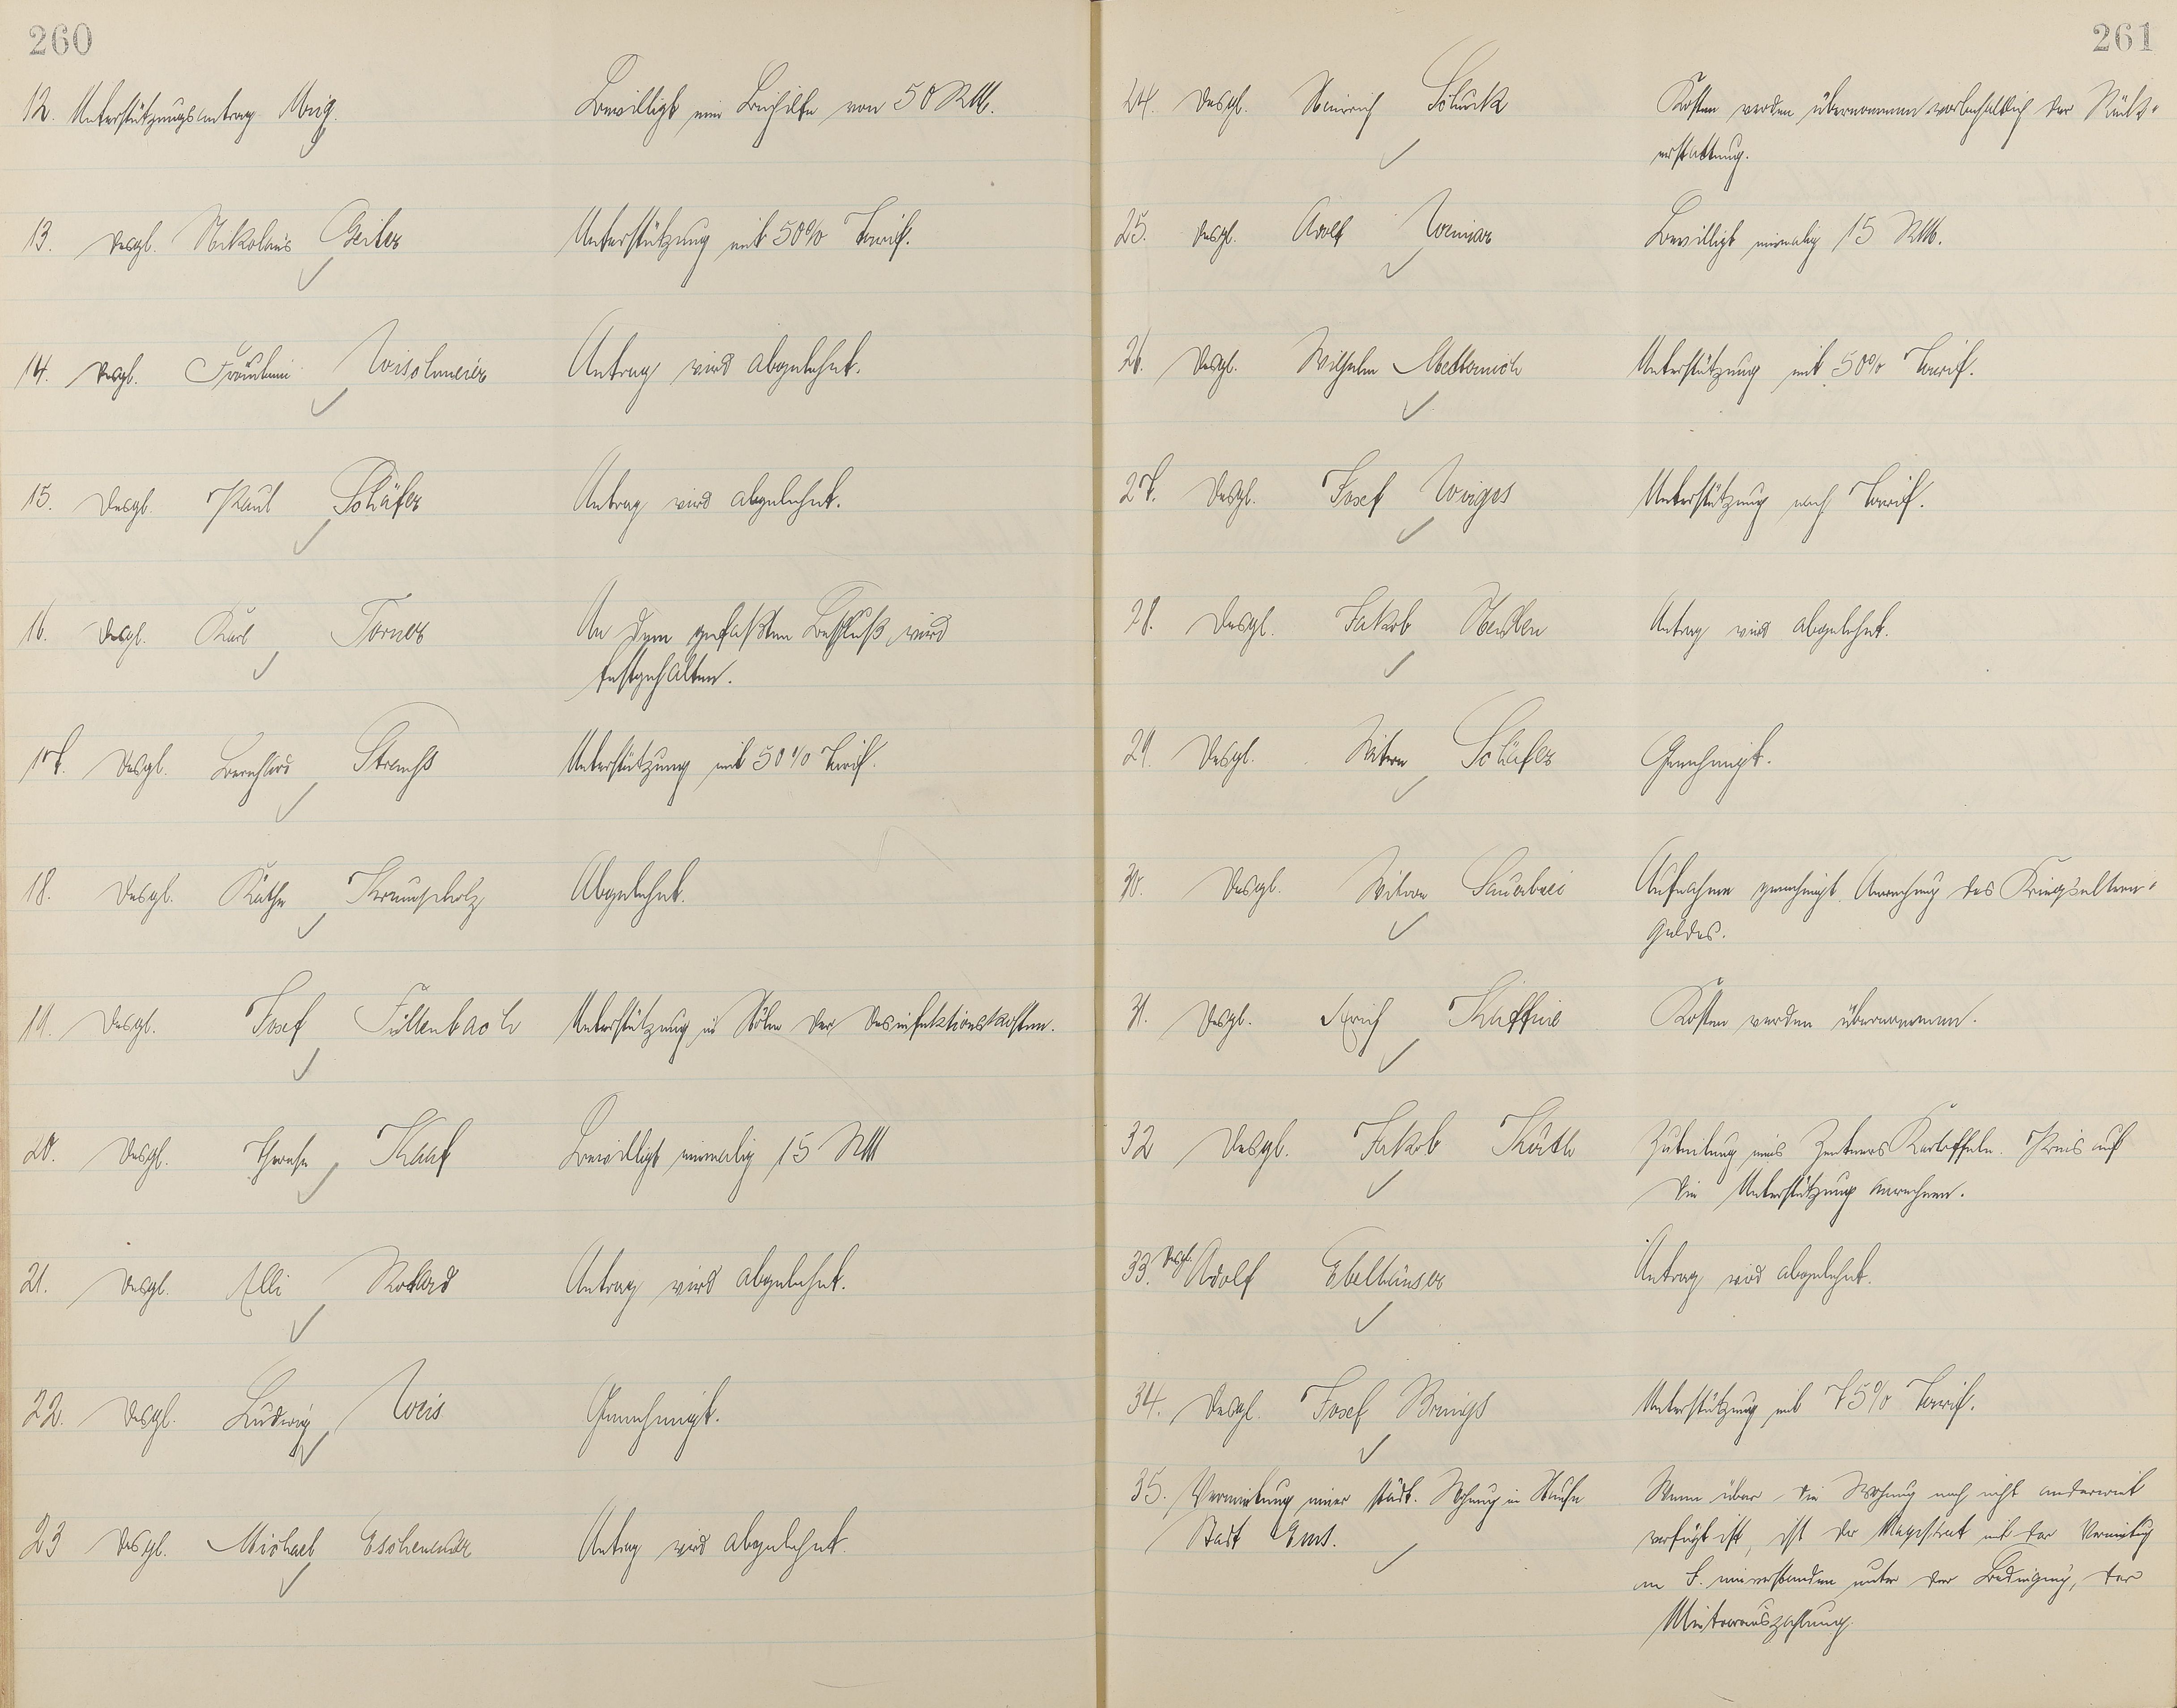 260
12. Unterstützungsantrag Mrig. Bewilligt eine Beihilfe von 50 RM.
13. Desgl. Nikolaus Geiter Unterstützung mit 50% Tarif.
14. Desgl. Fräulein Weisolmeier Antrag wird abgelehnt.
15. Desgl. Paul Schäfer Antrag wird abgelehnt.
16. Desgl. Karl Forner An dem gefaßten Beschluß wird
festgehalten.
17. Desgl. Bernhard Strauß Unterstützung mit 50% Tarif.
18. Desgl. Käthe Krumscholz Abgelehnt.
19. Desgl. Josef Füllenbach Unterstützung in Höhe der Desinfektionskosten.
20. Desgl. Therese Karl Bewilligt einmalig 15 RM
21. Desgl. Elli Rockard Antrag wird abgelehnt.
22. Desgl. Ludwig Weis Genehmigt.
23 Desgl. Michael Eschenauer Antrag wird abgelehnt.
261
24. Desgl. Heinrich Schuck Kosten werden übernommen vorbehaltlich der Rück-
erstattung.
25. Desgl. Adolf Weimar Bewilligt einmalig 15 RM.
26. Desgl. Wilhelm Metternich Unterstützung mit 50% Tarif.
27. Desgl. Josef Weiges Unterstützung nach Tarif.
28. Desgl. Jakob Henden Antrag wird abgelehnt.
29. Desgl. Witwe Schäfer Genehmigt.
30. Desgl. Witwe Sauerbrei Aufnahme genehmigt. Anrechnung des Kriegseltern-
geldes.
31. Desgl. Erich Kaffine Kosten werden übernommen.
32 Desgl. Jakob Körtl Zuteilung eines Zentners Kartoffeln. Preis auf
die Unterstützung anrechnen.
33. Desgl. Adolf Ebelhäuser Antrag wird abgelehnt.
34. Desgl. Josef Breings Unterstützung mit 75% Tarif.
35. Vermietung einer städt. Wohnung im Hause Wenn über die Wohnung noch nicht anderweit
Stadt Ems. verfügt ist, ist der Magistrat mit der Vermietung
an S. einverstanden unter der Bedingung, der
Mietvorauszahlung.